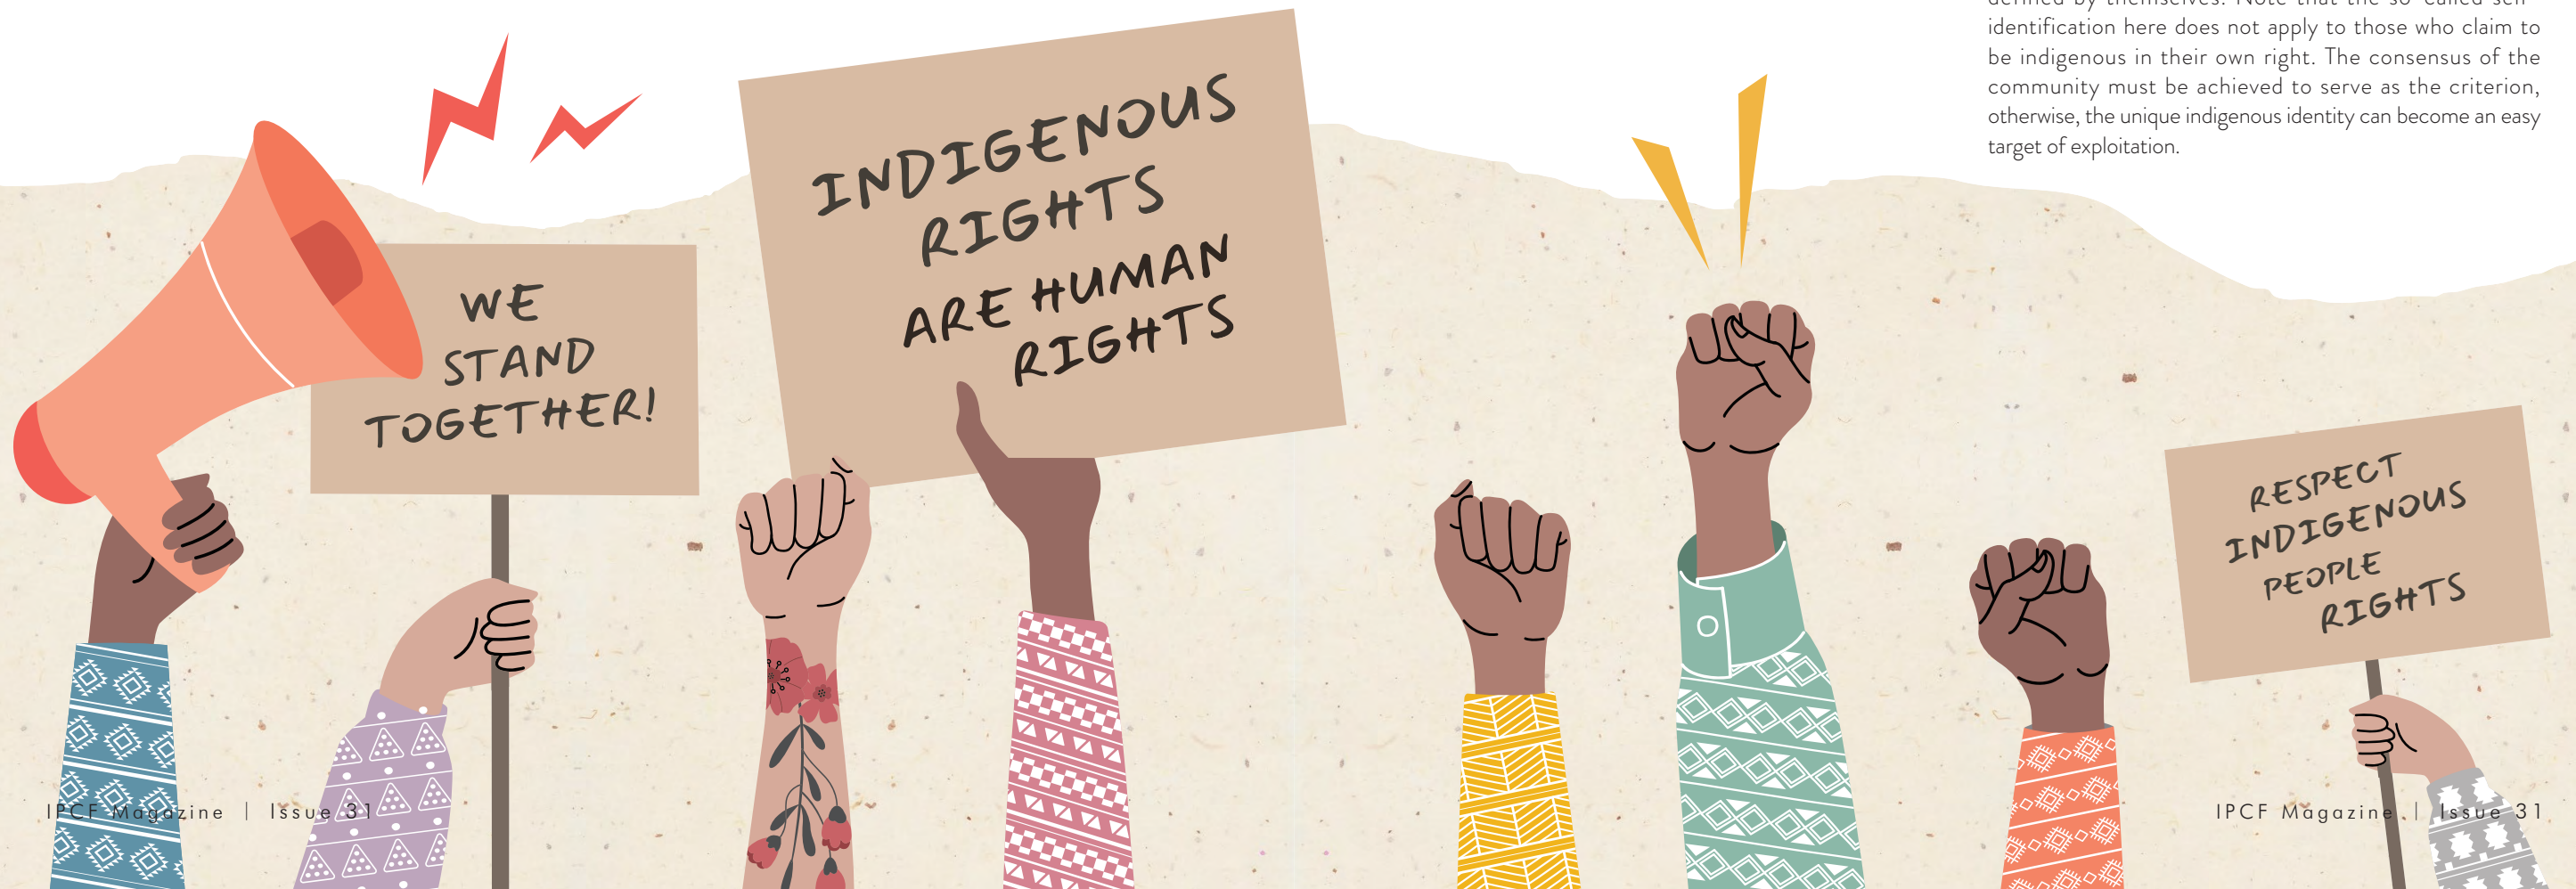 identification here does not apply to those who claim to
be indigenous in their own right. The consensus of the
community must be achieved to serve as the criterion,
otherwise, the unique indigenous identity can become an easy
target of exploitation.
INDIGENOUS
RIGHTS
ARE HUMAN
RIGHTS
WE
STAND
TOGETHER!
RESPECT
INDIGENOUS
PEOPLE
RIGHTS
IPCF Magazine | Issue 31
IPCF Magazine | Issue 31